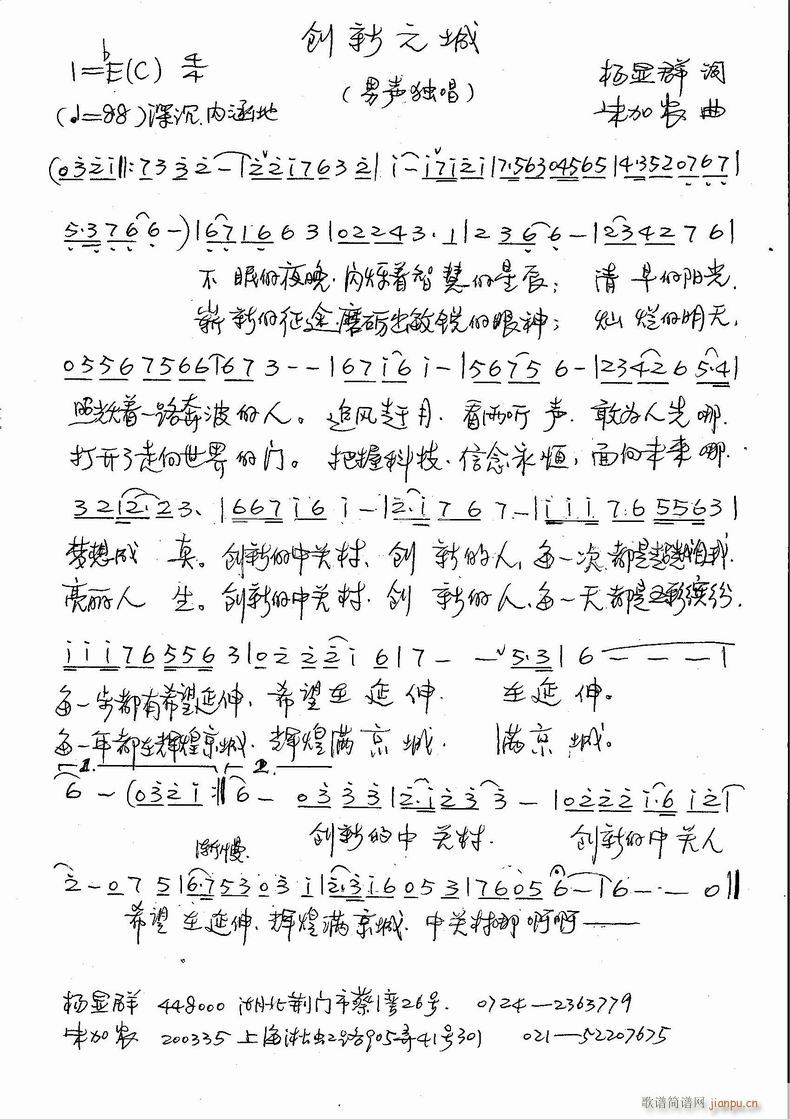 创新之城
1=♭E(C) 4/4
(男声独唱)
杨显群 词
(♩=88) 深沉.内涵地
朱加农 曲
(0 3 2 i ||: 7 3 3 2 – | 2 2 i 7 6 3 2 | i – i 7 i 2 i | 7·5 6 3 0 4 5 6 5 | 4·3 5 2 0 7 6 7 |
5·3 7 6 6 –) | 6 7 1 6 6 3 | 0 2 2 4 3· 1 | 2 3 6 6 – | 2 3 4 2 7 6 |
不眠的夜晚.闪烁着智慧的星辰; 清早的阳光.
崭新的征途.磨砺出敏锐的眼神; 灿烂的明天,
0 5 5 6 7 5 6 6 | 6 7 3 – – | 6 7 i 6 i – | 5 6 7 5 6 – | 2 3 4 2 6 5·4 |
照耀着一路奔波的人。 追风赶月. 看雨听声. 敢为人先哪.
打开了走向世界的门。 把握科技.信念永恒, 面向未来哪.
3 2 1 2· 2 3· | 6 6 7 i 6 i – | 2· i 7 6 7 – | i i i 7 6 5 5 6 3 |
梦想成真。创新的中关村、创新的人,每一次都是超越自我.
亮丽人生。创新的中关村.创新的人,每一天都是五彩缤纷.
i i i 7 6 5 5 6 3 | 0 2 2 2 i 6 | 7 – – 5·3 | 6 – – – |
每一步都有希望延伸,希望在延伸. 在延伸。
每一年都在辉煌京城.辉煌满京城. 满京城。
1. 2.
6 – (0 3 2 i :|| 6 – 0 3 3 3 | 2·i 2 3 3 – | 0 2 2 2 i·6 i 2 |
创新的中关村. 创新的中关人
渐慢.
2 – 0 7 5 | 6·7 5 3 0 3 i | 2·3 i 6 0 5 3 | 7 6 0 5 6 – | 6 – – 0 ||
希望在延伸.辉煌满京城.中关村哪啊啊——
杨显群 448000 湖北荆门市蔡1弯26号. 0724—2363779
朱加农 200335 上海 2路905弄41号301 021—52207675
歌谱简谱网
jianpu.cn